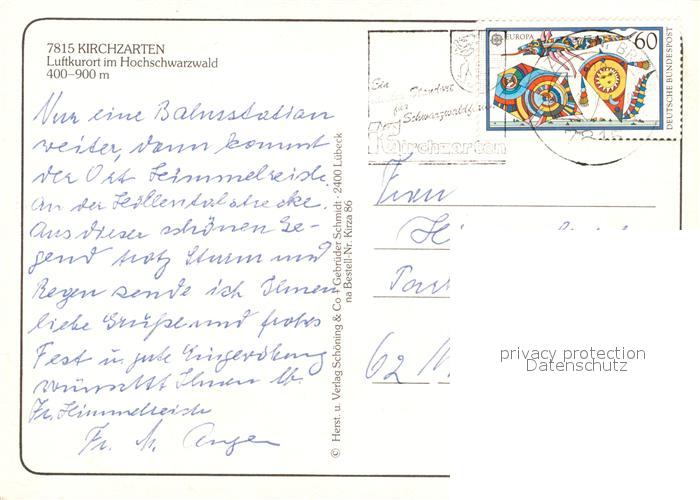 7815 KIRCHZARTEN
Luftkurort im Hochschwarzwald
400–900 m
Nur eine Bahnstation
weiter, dann kommt
der Ort Himmelreich
an der Höllentalstrecke.
Aus dieser schönen Ge-
gend trotz Sturm und
Regen sende ich Ihnen
liebe Grüße und frohes
Fest u. gute
wünscht Ihnen Ib.
Fr. Himmelreich
Fr. M.
© Herst. u. Verlag Schöning & Co + Gebrüder Schmidt · 2400 Lübeck
na Bestell-Nr. Kirza 86
Ein
für
Schwarzwald
Kirchzarten
EUROPA
60
DEUTSCHE BUNDESPOST
7815
Herrn
62
privacy protection
Datenschutz